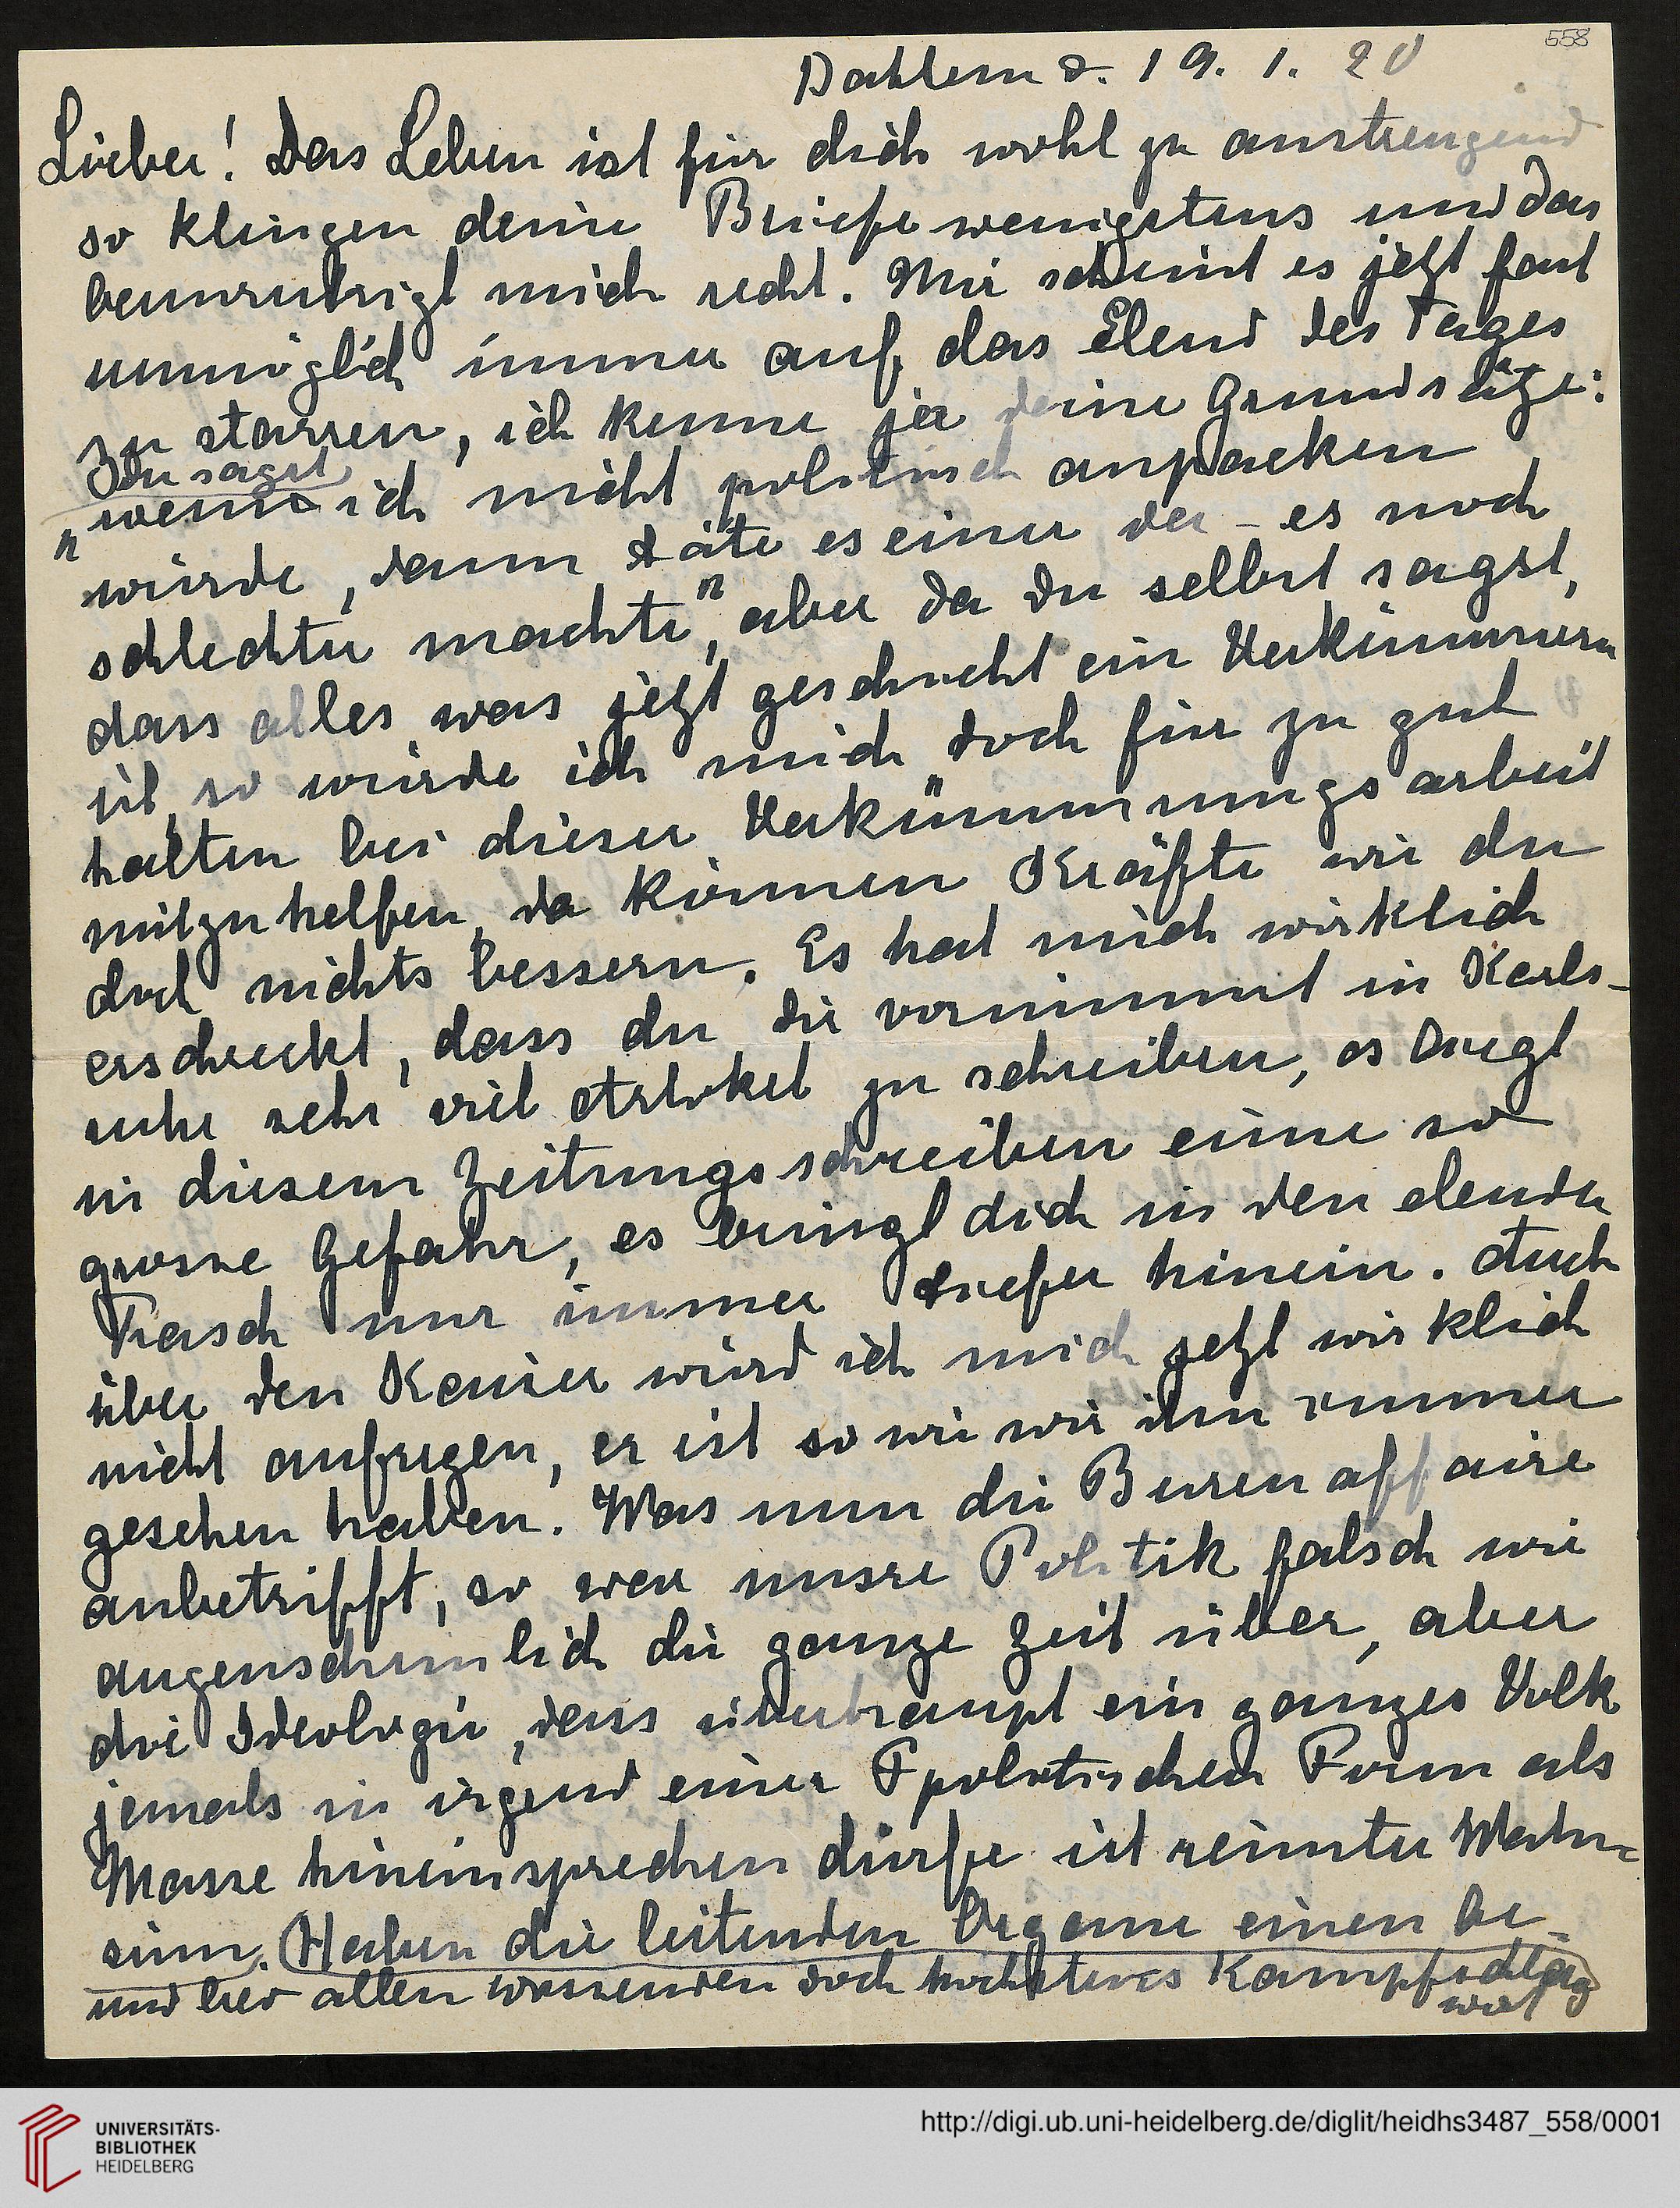 558
Dahlem d. 19. 1. 20
Lieber! Das Leben ist für dich wohl zu anstrengend
so klingen deine Briefe wenigstens und das
beunruhigt mich recht. Mir scheint es jetzt fast
unmöglich immer auf das Elend des Tages
zu starren, ich kenne ja deine Grundsätze:
Du sagst
"wenn ich nicht politisch anpacken
würde, dann täte es einer der - es noch
schlechter machte", aber da du selbst sagst,
dass alles was jetzt geschieht ein Verkümmern
ist, so würde ich mich doch für zu gut
halten bei dieser Verkümmrungsarbeit
mitzuhelfen, da können Kräfte wie du
doch nichts bessern. Es hat mich wirklich
erschreckt, dass du dir vornimmst in Karls-
ruhe sehr viel Artikel zu schreiben, es liegt
in diesem Zeitungsschreiben eine so
grosse Gefahr, es bringt dich in den elenden
Tratsch nur immer tiefer hinein. Auch
über den Kaiser würd ich mich jetzt wirklich
nicht aufregen, er ist so wie wir ihn immer
gesehen haben. Was nun die Burenaffaire
anbetrifft, so war unsre Politik falsch wie
augenscheinlich die ganze Zeit über, aber
die Ideologie, dass überhaupt ein ganzes Volk
jemals in irgend einer politischen Form als
Masse hineinsprechen dürfe ist reinster Wahn-
sinn. Haben die leitenden Organe einen be-
und hier allen wissenden doch Kampfschlag
war
UNIVERSITÄTS-
BIBLIOTHEK
HEIDELBERG
http://digi.ub.uni-heidelberg.de/diglit/heidhs3487_558/0001